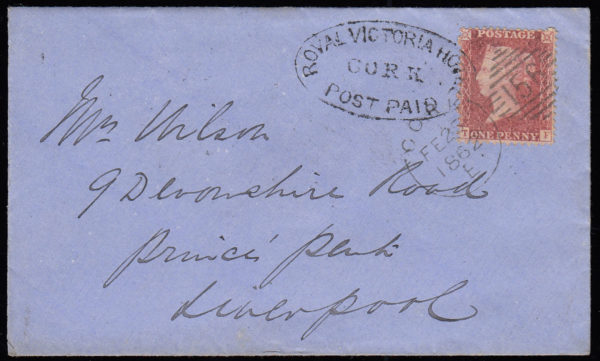 ROYAL VICTORIA HO
CORK
POST PAID
POSTAGE
ONE PENNY
CO
FE
1862
Mrs Wilson
9 Devonshire Road
Prince's Park
Liverpool